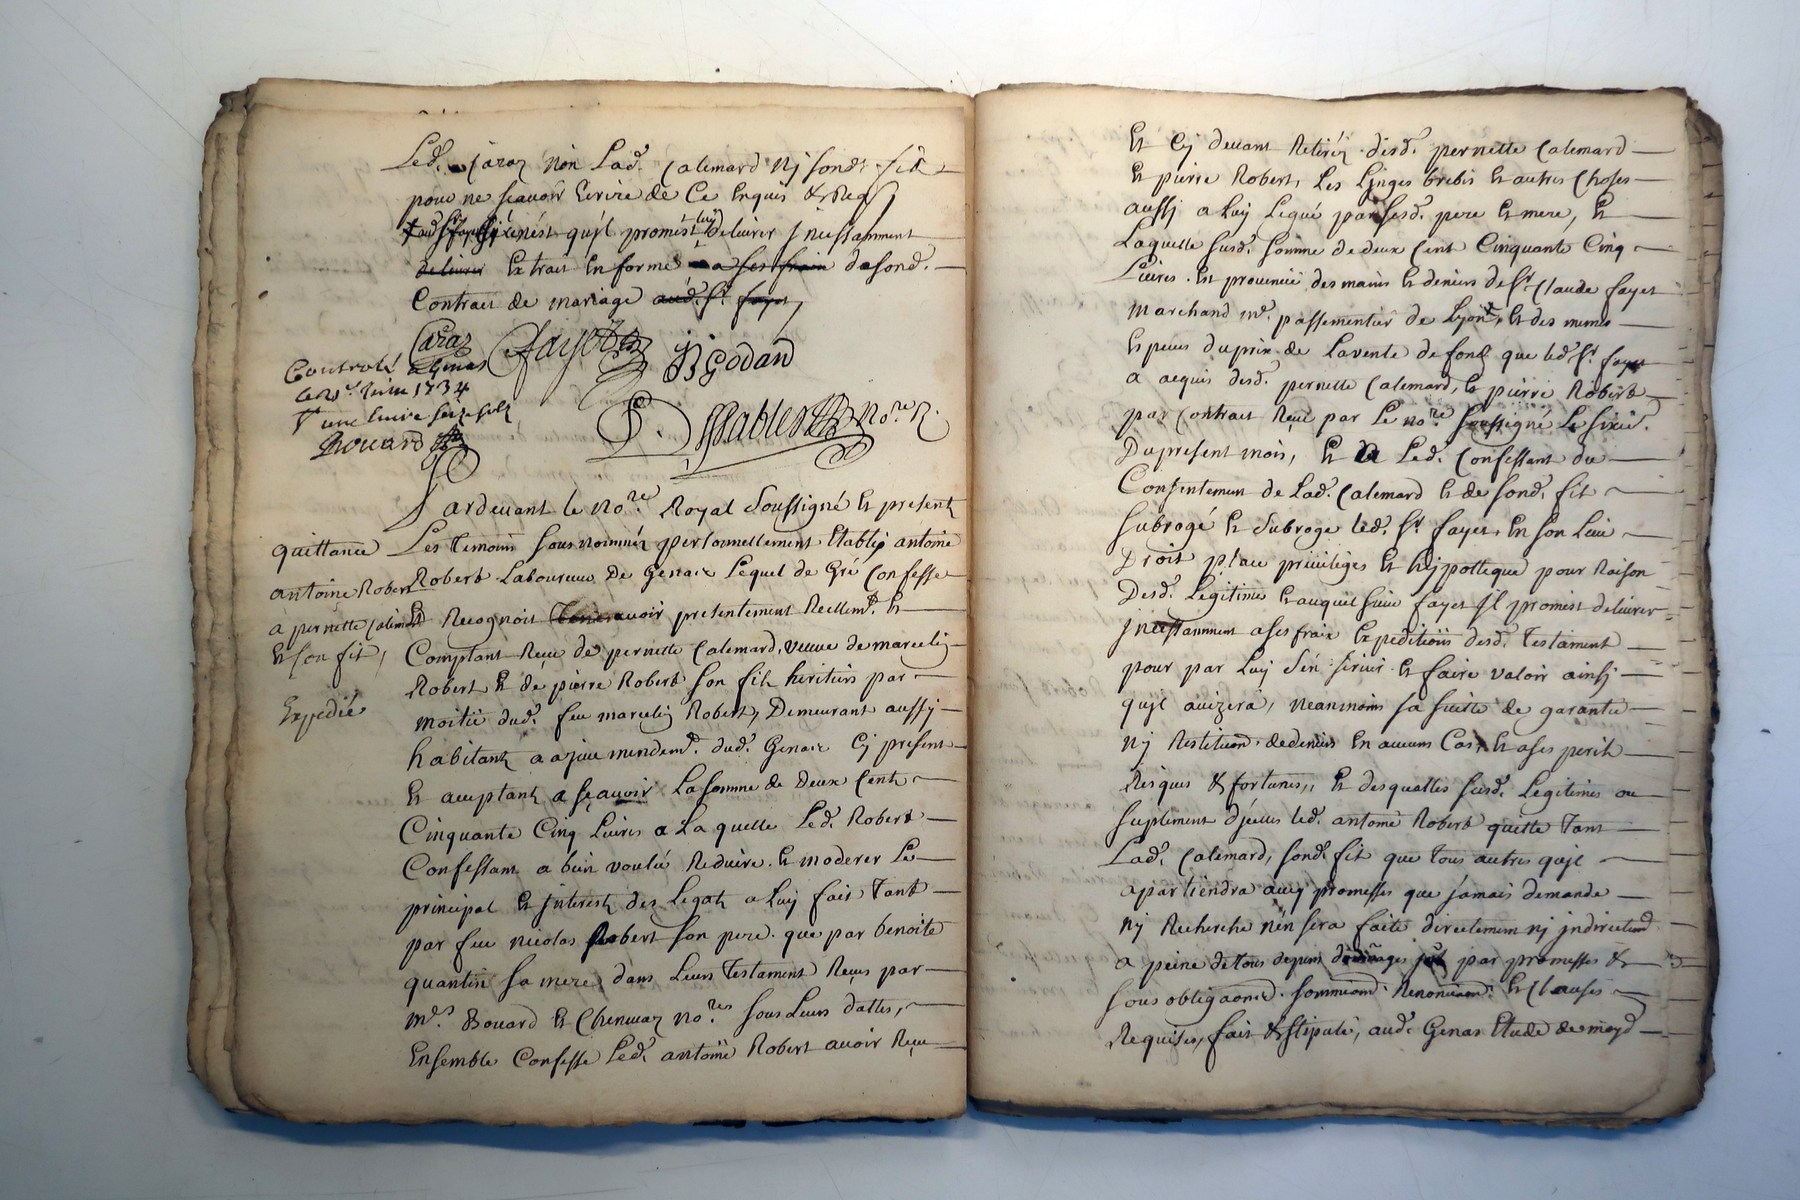 Led. Caraz non Lad. Calemard nj sond. fils
pour ne scavoir Ecrire de Ce Enquis & Req
qu'jl promest luy delivrer jncessamment
delivrer Extrait En forme a ses frais dasond.
Contrait de mariage aud. Sr. fayet
Caraz Fayet JB Godan
Controlé a Genas
le juin 1734
une livre seize sols
Rouard
Sablet No.re R.
Pardevant le No.re Royal Soussigné Et present
quittance
Les Temoins sous nommés personnellement Etably antoine
antoine Robert
Robert Laboureur De Genas Lequel de Gré Confesse
a pernette Calemard
Et Recognoit avoir presentement Reellemt. Et
Et son fils,
Comptant Reçu de pernette Calemard, veuve de marcelin
Robert Et de pierre Robert Son fils heritiers par
Expedié
moitié dud. feu marcelin Robert, Demeurant aussj
habitants a mandemt. dud. Genas Cj present
Et acceptants a scavoir La somme de Deux Cents
Cinquante Cinq Livres a La quelle Led. Robert
Confessant a bien voulu Reduire Et moderer Le
principal Et jnterests des Legats a Luy fait Tant
par feu nicolas Robert son pere que par benoite
quantin sa mere dans Leurs Testament Reçus par
md. Bouard Et No.res sous Leurs dattes,
Ensemble Confesse Led. antoine Robert avoir Reçu
Et Cj devant Retirés desd. pernette Calemard
Et pierre Robert, Les Linges brebis Et autres Choses
aussj a Luy Legué par sesd. pere Et mere, Et
Laquelle susd. somme de deux Cent Cinquante Cinq
Livres Est provenüe des mains Et deniers de Sr. Claude fayet
marchand md. passementier de Lyon, Et des memes
Especes du prix de La vente de fonds que led. Sr. fayet
a acquis desd. pernette Calemard, Et pierre Robert
par Contrait Reçu par Le No.re soussigné Le sixie.
Du present mois, Et Led. Confessant du
Consentement de Lad. Calemard Et de sond. fils
subrogé Et subroge led. Sr. fayet En son Lieu
Droit place privileges Et hijpotteque pour Raison
Desd. Legitimes Et auquel sieur fayet Jl promest delivrer
jncessamment a ses frais Expeditions desd. Testament
pour par Luy s'en servir Et faire valoir ainsj
qujl avizera, neanmoins sa suitte de garantie
nj Restitution de deniers En aucuns Cas, Et a ses perils
Risques & fortunes, Et desquelles susd. Legitimes ou
suplement d'jcelles led. antoine Robert quitte Tant
Lad. Calemard, sond. fils que Tous autres qujl
apartiendra avec promesses que jamais demande
nj Recherche n'en sera faite directement nj jndirectemt
a peine de Tous depens dommages par promesses &
sous obligaons. soumiond. Renonciond. Et Clauses
Requises, fait & stipulé, aud. Genas Etude de moyd